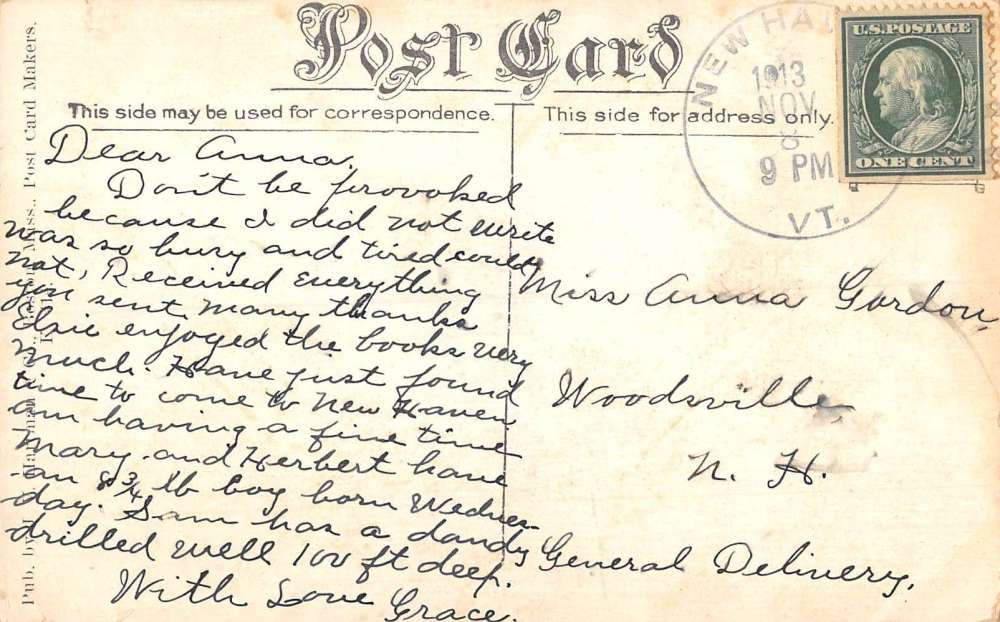 Post Card
This side may be used for correspondence.
This side for address only.
NEW HA
1913
NOV
8
9 PM
VT.
U.S. POSTAGE
ONE CENT
Dear Anna.
Don't be provoked
because I did not write
was so busy and tired could
not, Received everything
you sent, many thanks
Elsie enjoyed the books very
much. Have just found
time to come to New Haven
am having a fine time
Mary and Herbert have
an 8 3/4 lb boy born Wednes-
day. Sam has a dandy
drilled well 100 ft deep.
With Love Grace.
Miss Anna Gordon,
Woodsville
N. H.
General Delivery.
Pub. by Mass., Post Card Makers.